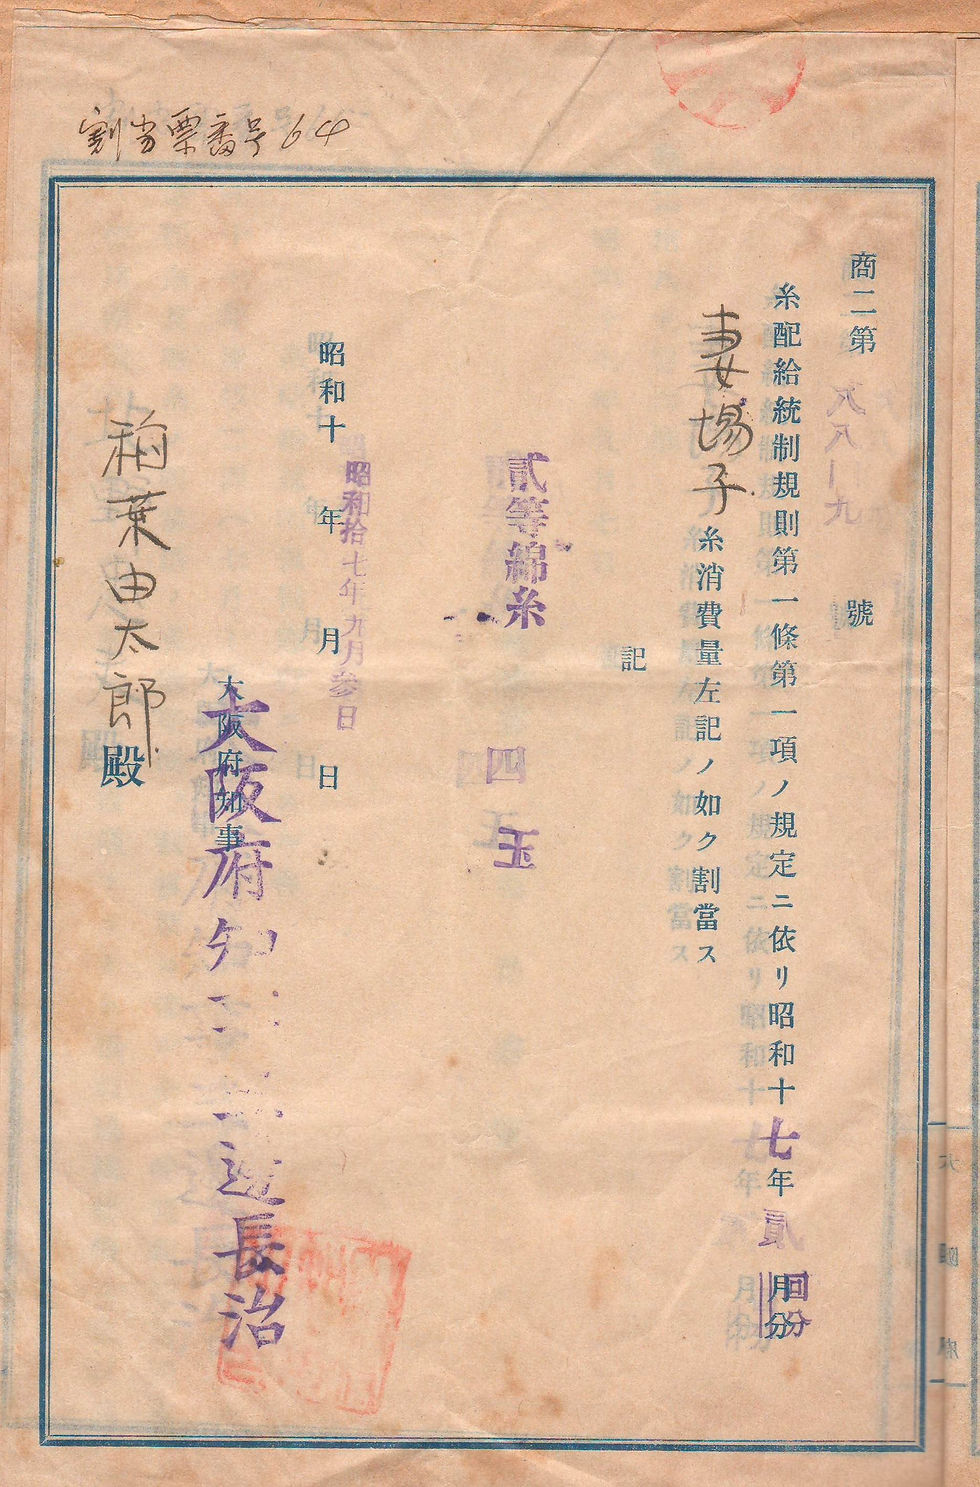 割当票番号64
商二第八八一九號
糸配給統制規則第一條第一項ノ規定ニ依リ昭和十七年貳月分
回分
糸消費量左記ノ如ク割當ス
記
貳等綿糸 四玉
昭和十 年 月 日
昭和拾七年九月参日
大阪府知事
大阪府知事 三邊長治
稲葉由太郎殿